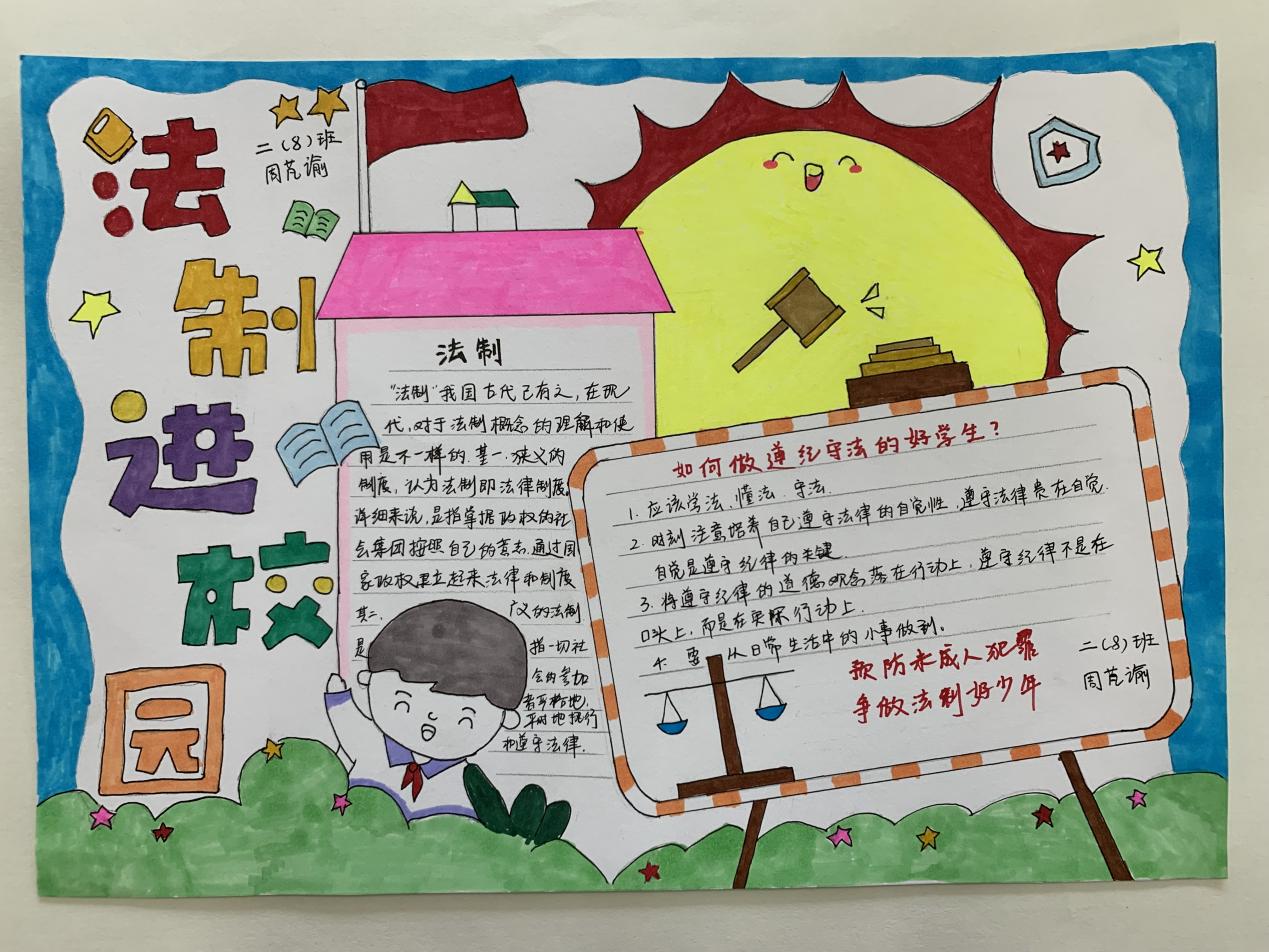 法
制
进
校
园
二(8)班
周芃谕
法制
"法制"我国古代已有之,在现
代,对于法制概念的理解和使
用是不一样的.其一.狭义的
制度,认为法制即法律制度。
详细来说,是指掌握政权的社
会集团按照自己的意志.通过国
家政权建立起来法律和制度
其二. 广义的法制
是 指一切社
会的参加
者严格地,
平时地执行
和遵守法律.
如何做遵纪守法的好学生?
1. 应该学法、懂法、守法.
2. 时刻注意培养自己遵守法律的自觉性,遵守法律贵在自觉.
自觉是遵守纪律的关键.
3. 将遵守纪律的道德观念落在行动上,遵守纪律不是在
口头上,而是在实际行动上.
4. 要 从日常生活中的小事做到。
预防未成人犯罪
争做法制好少年
二(8)班
周芃谕